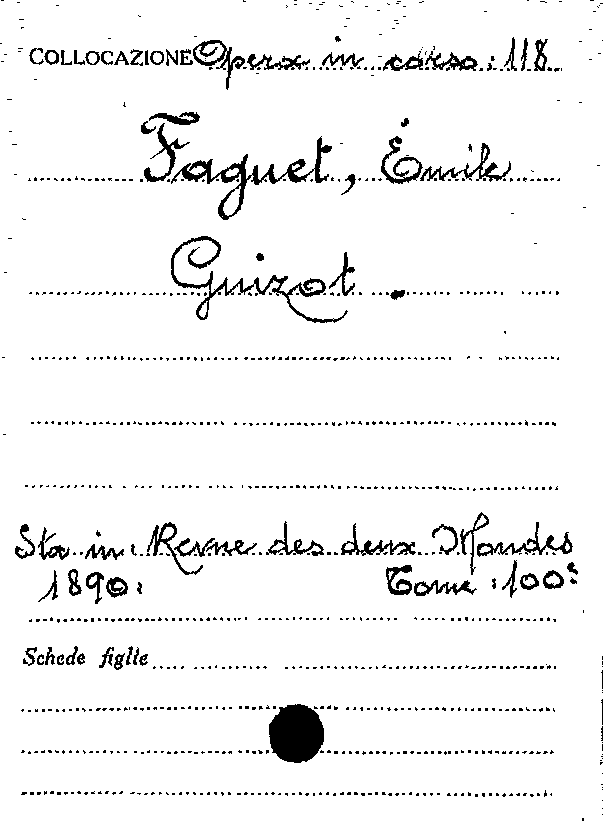 COLLOCAZIONE Opera in corso: 118
Faguet, Émile
Guizot.
Sta in: Revue des deux Mondes
1890: Tome: 100º
Schede figlie